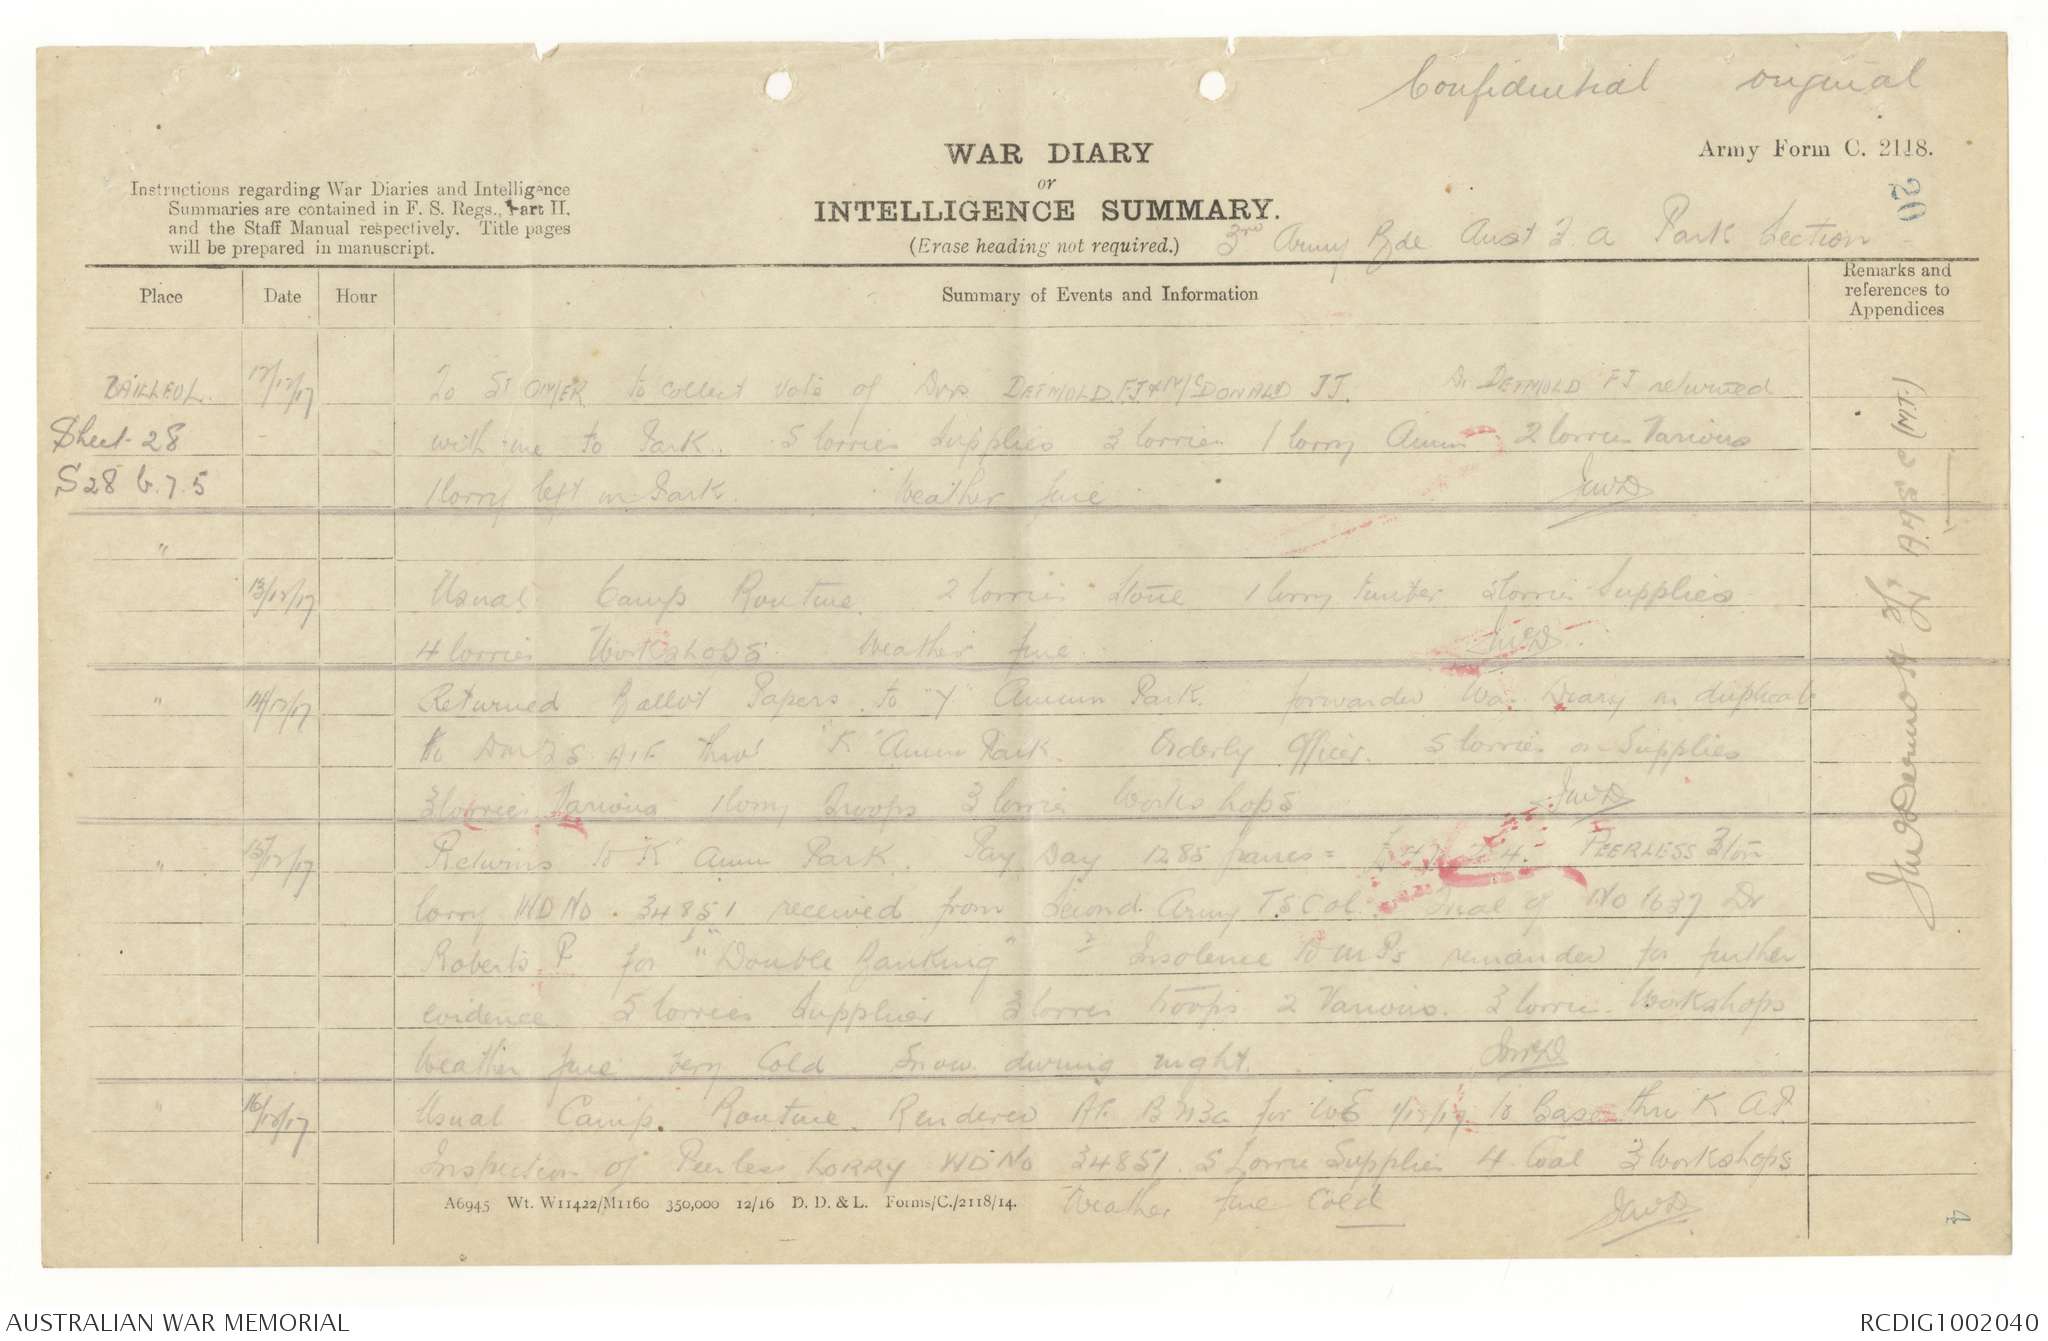 Confidential original
Army Form C. 2118.
WAR DIARY
or
INTELLIGENCE SUMMARY.
(Erase heading not required.)
3rd Army Bde Aust F A Park Section
20
Instructions regarding War Diaries and Intelligence
Summaries are contained in F. S. Regs., Part II.
and the Staff Manual respectively. Title pages
will be prepared in manuscript.
Place Date Hour Summary of Events and Information Remarks and references to Appendices
BAILLEUL. 12/12/17 To ST OMER to collect vote of Dvrs DETMOLD FJ & McDONALD JJ. Dr DETMOLD FJ returned
Sheet 28 with me to Park. 5 lorries Supplies 3 lorries 1 lorry Ammn 2 lorries Various
S28 b.7.5 1 lorry left in Park. Weather fine JMcD
"
13/12/17 Usual Camp Routine. 2 lorries Stone 1 lorry Timber 5 lorries Supplies
4 lorries Workshops. Weather fine. JMcD
" 14/12/17 Returned Ballot Papers to "Y" Ammn Park. forwarded War Diary in duplicate
to AIF thro' "K" Ammn Park. Orderly Officer. 5 lorries on Supplies
3 lorries Various 1 lorry Troops 3 lorries Workshops JMcD
" 15/12/17 Returns to "K" Ammn Park. Pay Day 1285 francs = PEERLESS 3 ton
lorry WD No. 34851 received from Second Army T.S Col. Trial of No 1637 Dr
Roberts P for "Double Banking" & Insolence to M Ps remanded for further
evidence 5 lorries Supplies 3 lorries troops 2 Various. 3 lorries Workshops
Weather fine very Cold Snow during night. JMcD
" 16/12/17 Usual Camp Routine. Rendered AF B 213a for WE to Base thru K A.P.
Inspection of Peerless LORRY WD No 34851. 5 Lorries Supplies 4 Coal 3 Workshops
Weather fine Cold JMcD
A6945 Wt. W11422/M1160 350,000 12/16 D. D. & L. Forms/C./2118/14.
JMcDermott Lt AASC (MT)
4
AUSTRALIAN WAR MEMORIAL
RCDIG1002040